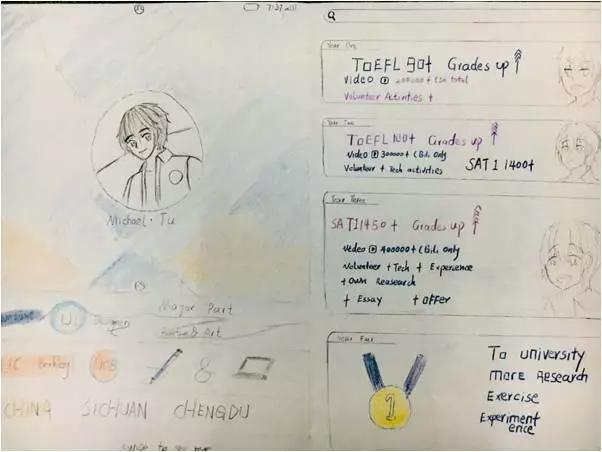 Michael · Tu
Major Part
UI Designer
&
CHINA SICHUAN CHENGDU
Year One
TOEFL 90+ Grades up
Video 200000+ (Bili total
Volunteer Activities +
Year Two
TOEFL 100+ Grades up
Video 300000+ (Bili Only
Volunteer + Tech activities SAT 1 1400+
Year Three
SAT1 1450+ Grades up
Video 400000+ (Bili Only
Volunteer + Tech + Experience
+ Own Reasearch
+ Essay + offer
Year Four
1
To university
more Research
Exercise
Experiment
ence